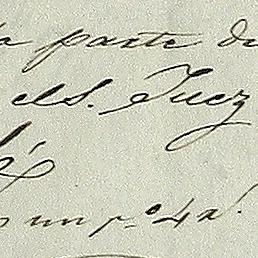 a parte de
el S. Juez
é
un p.º 4a.